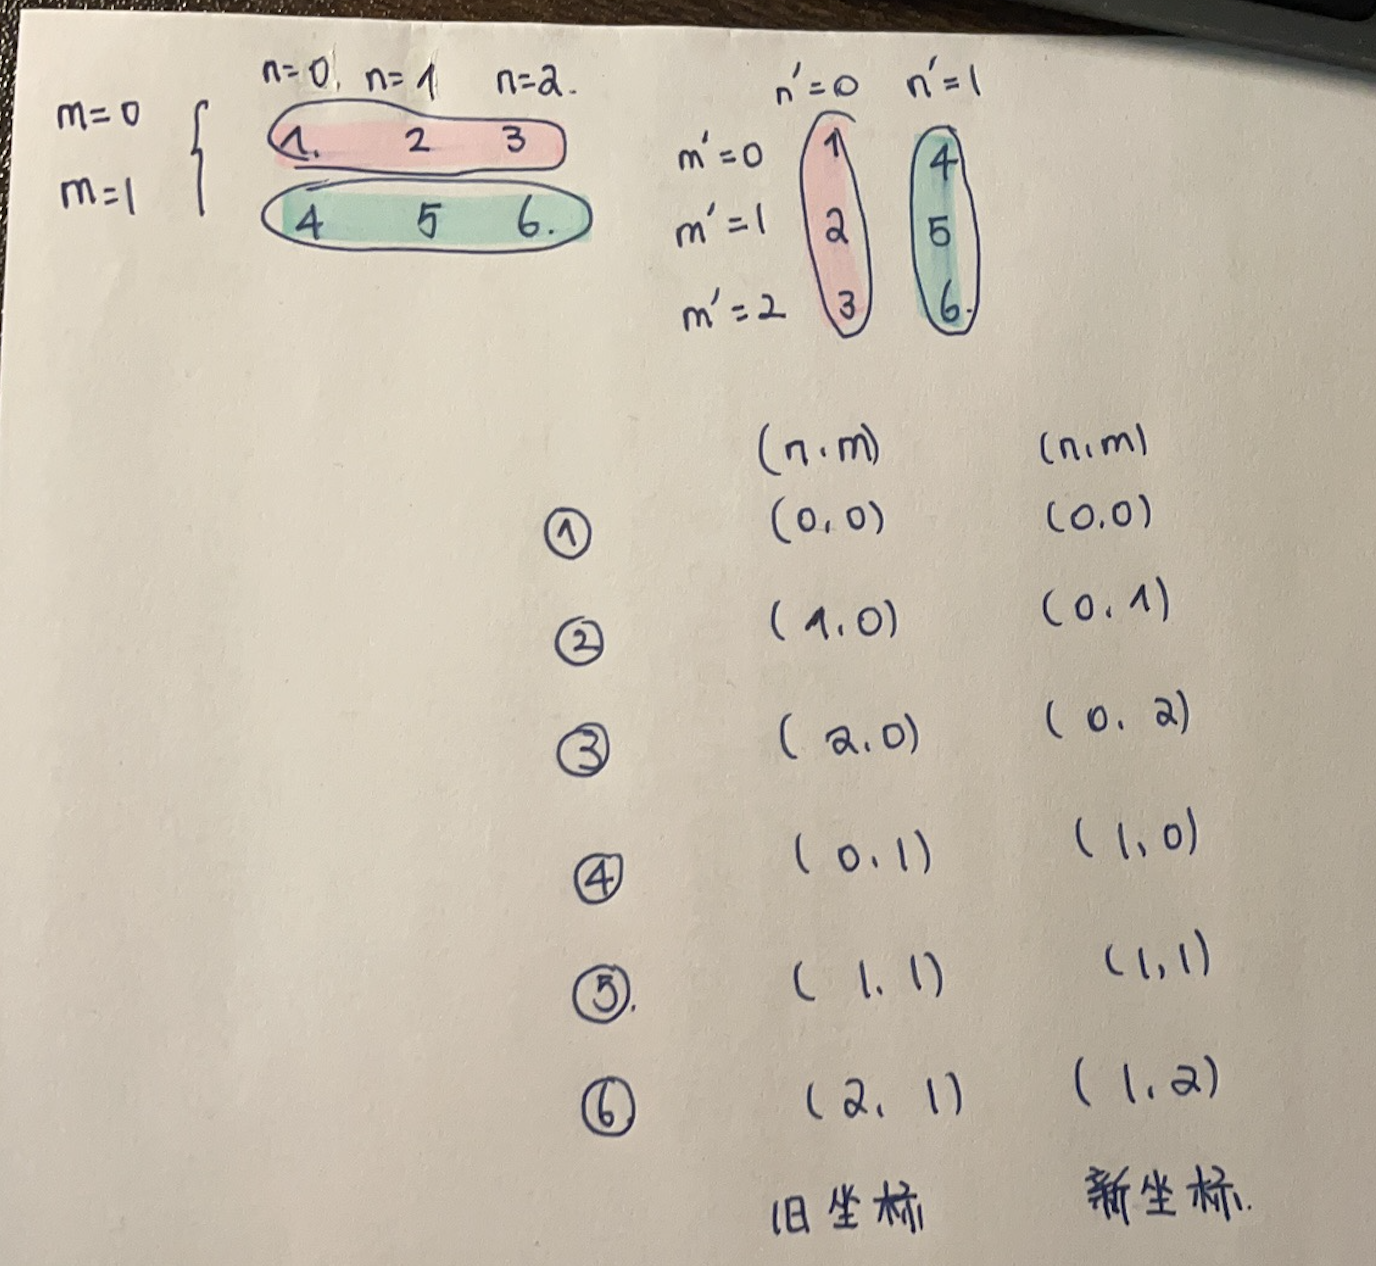 n=0, n=1 n=2.
m=0 { 1. 2 3
m=1 4 5 6.
n'=0 n'=1
m'=0 1 4
m'=1 2 5
m'=2 3 6.
(n.m) (n,m)
① (0,0) (0,0)
② (1,0) (0,1)
③ (2,0) (0,2)
④ (0,1) (1,0)
⑤. (1,1) (1,1)
⑥ (2,1) (1,2)
旧坐标 新坐标.